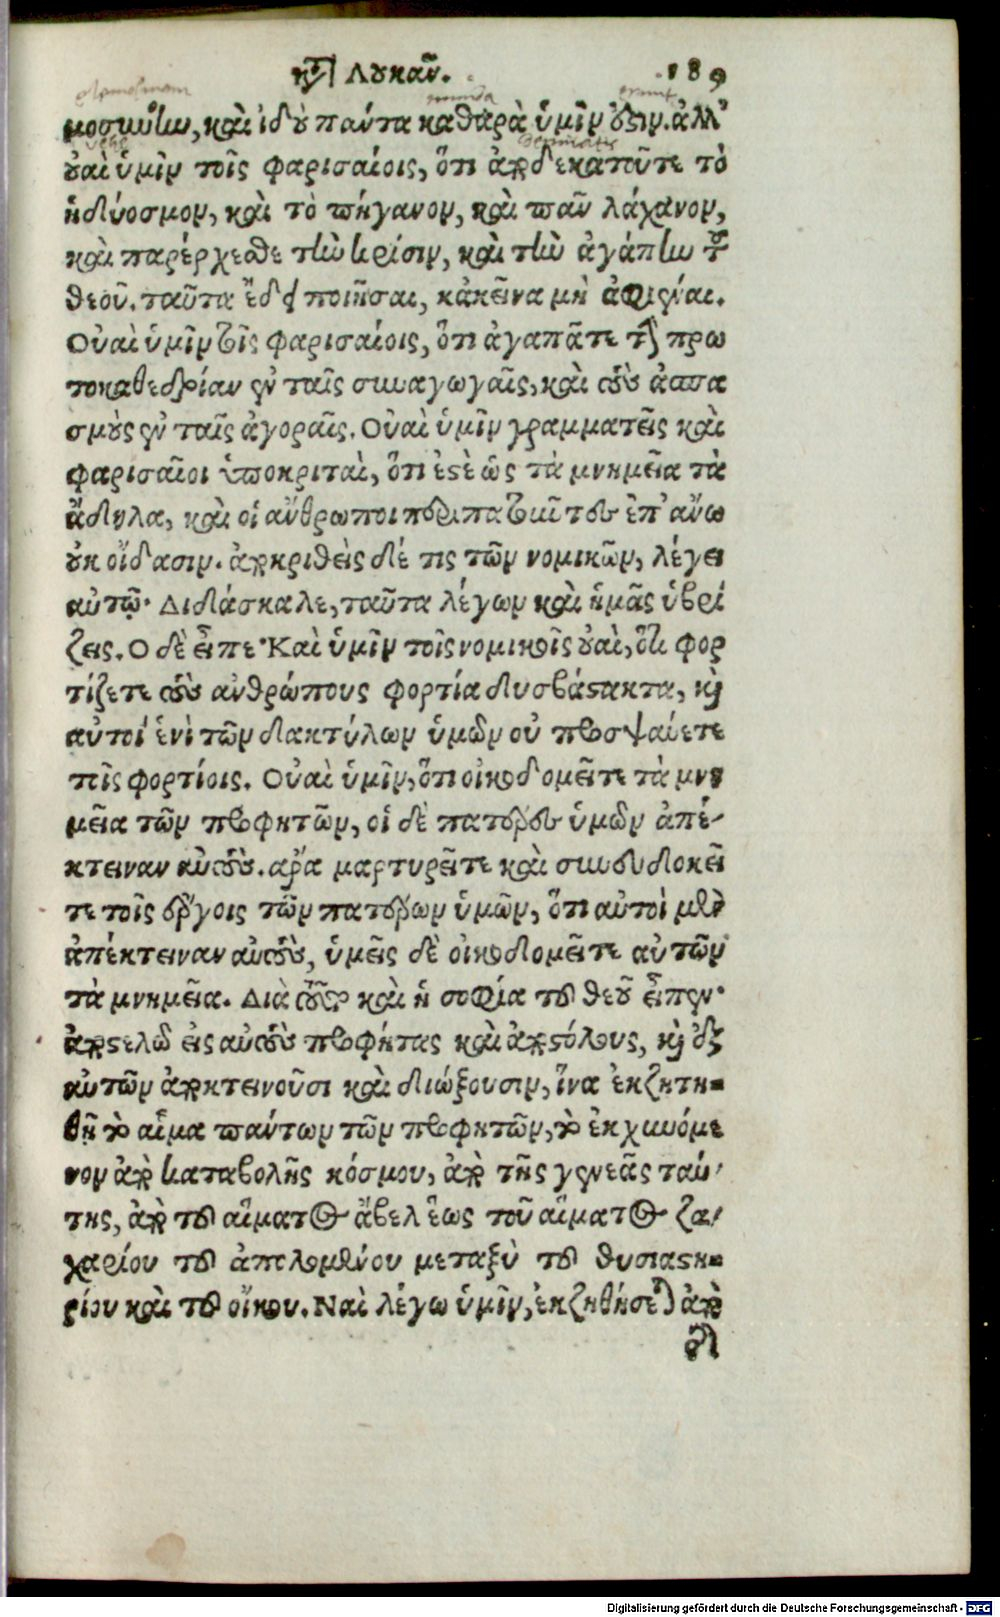 κτ̀ Λουκᾶν. 189
elemosinam munda erunt
μοσύνην, καὶ ἰδοὺ πάντα καθαρὰ ὑμῖν ὄξιν. ἀλλ'
vehe decimatis
οὐαὶ ὑμῖν τοῖς φαρισαίοις, ὅτι ἀποδεκατοῦτε τὸ
ἡδύοσμον, καὶ τὸ πήγανον, καὶ πᾶν λάχανον,
καὶ παρέρχεσθε τὴν κρίσιν, καὶ τὴν ἀγάπην τοῦ
θεοῦ. ταῦτα ἔδει ποιῆσαι, κἀκεῖνα μὴ ἀφιέναι.
Οὐαὶ ὑμῖν τοῖς φαρισαίοις, ὅτι ἀγαπᾶτε τὴν πρω
τοκαθεδρίαν ἐν ταῖς συναγωγαῖς, καὶ τοὺς ἀσπα
σμοὺς ἐν ταῖς ἀγοραῖς. Οὐαὶ ὑμῖν γραμματεῖς καὶ
φαρισαῖοι ὑποκριταὶ, ὅτι ἐστὲ ὡς τὰ μνημεῖα τὰ
ἄδηλα, καὶ οἱ ἄνθρωποι περιπατοῦντες ἐπ' ἄνω
οὐκ οἴδασιν. ἀποκριθεὶς δέ τις τῶν νομικῶν, λέγει
αὐτῷ· Διδάσκαλε, ταῦτα λέγων καὶ ἡμᾶς ὑβρί
ζεις. Ο δὲ εἶπε· Καὶ ὑμῖν τοῖς νομικοῖς οὐαὶ, ὅτι φορ
τίζετε τοὺς ἀνθρώπους φορτία δυσβάστακτα, καὶ
αὐτοὶ ἑνὶ τῶν δακτύλων ὑμῶν οὐ προσψαύετε
τοῖς φορτίοις. Οὐαὶ ὑμῖν, ὅτι οἰκοδομεῖτε τὰ μνη
μεῖα τῶν προφητῶν, οἱ δὲ πατέρες ὑμῶν ἀπέ-
κτειναν αὐτούς. ἄρα μαρτυρεῖτε καὶ συνευδοκεῖ
τε τοῖς ἔργοις τῶν πατέρων ὑμῶν, ὅτι αὐτοὶ μὲν
ἀπέκτειναν αὐτοὺς, ὑμεῖς δὲ οἰκοδομεῖτε αὐτῶν
τὰ μνημεῖα. Διὰ τοῦτο καὶ ἡ σοφία τοῦ θεοῦ εἶπεν·
ἀποστελῶ εἰς αὐτοὺς προφήτας καὶ ἀποστόλους, καὶ ἐξ
αὐτῶν ἀποκτενοῦσι καὶ διώξουσιν, ἵνα ἐκζητη-
θῇ τὸ αἷμα πάντων τῶν προφητῶν, τὸ ἐκχυνόμε
νον ἀπὸ καταβολῆς κόσμου, ἀπὸ τῆς γενεᾶς ταύ-
της, ἀπὸ τοῦ αἵματος ἄβελ ἕως τοῦ αἵματος ζα-
χαρίου τοῦ ἀπολομένου μεταξὺ τοῦ θυσιαστη-
ρίου καὶ τοῦ οἴκου. Ναὶ λέγω ὑμῖν, ἐκζηθήσεται ἀπὸ
Digitalisierung gefördert durch die Deutsche Forschungsgemeinschaft - DFG